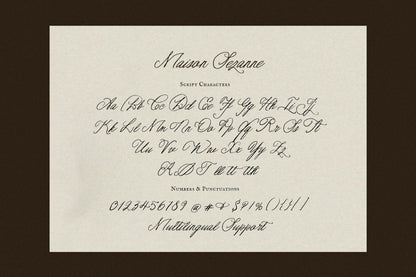 Maison Sezanne
Script Characters
Aa Bb Cc Dd Ee Ff Gg Hh Ii Jj
Kk Ll Mm Nn Oo Pp Qq Rr Ss Tt
Uu Vv Ww Xx Yy Zz
Numbers & Punctuations
0123456789 @ # & $ % ( ) { } [ ] /
Multilingual Support